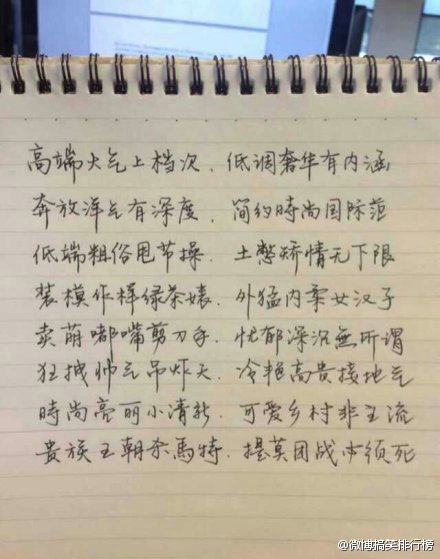 高端大气上档次、低调奢华有内涵
奔放洋气有深度、简约時尚国际范
低端粗俗甩节操、土憋矫情无下限
装模作样绿茶婊、外猛内柔女汉子
卖萌嘟嘴剪刀手、忧郁深沉無所谓
狂拽帅气吊炸天、冷艳高贵接地气
時尚亮丽小清新、可爱乡村非主流
贵族王朝杀馬特、提莫团战必须死
@微博搞笑排行榜